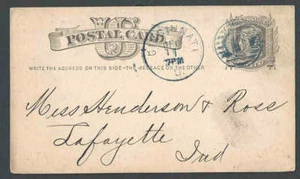 POSTAL CARD
WRITE THE ADDRESS ON THIS SIDE - THE MESSAGE ON THE OTHER
7PM
Miss Henderson & Ross
Lafayette
Ind